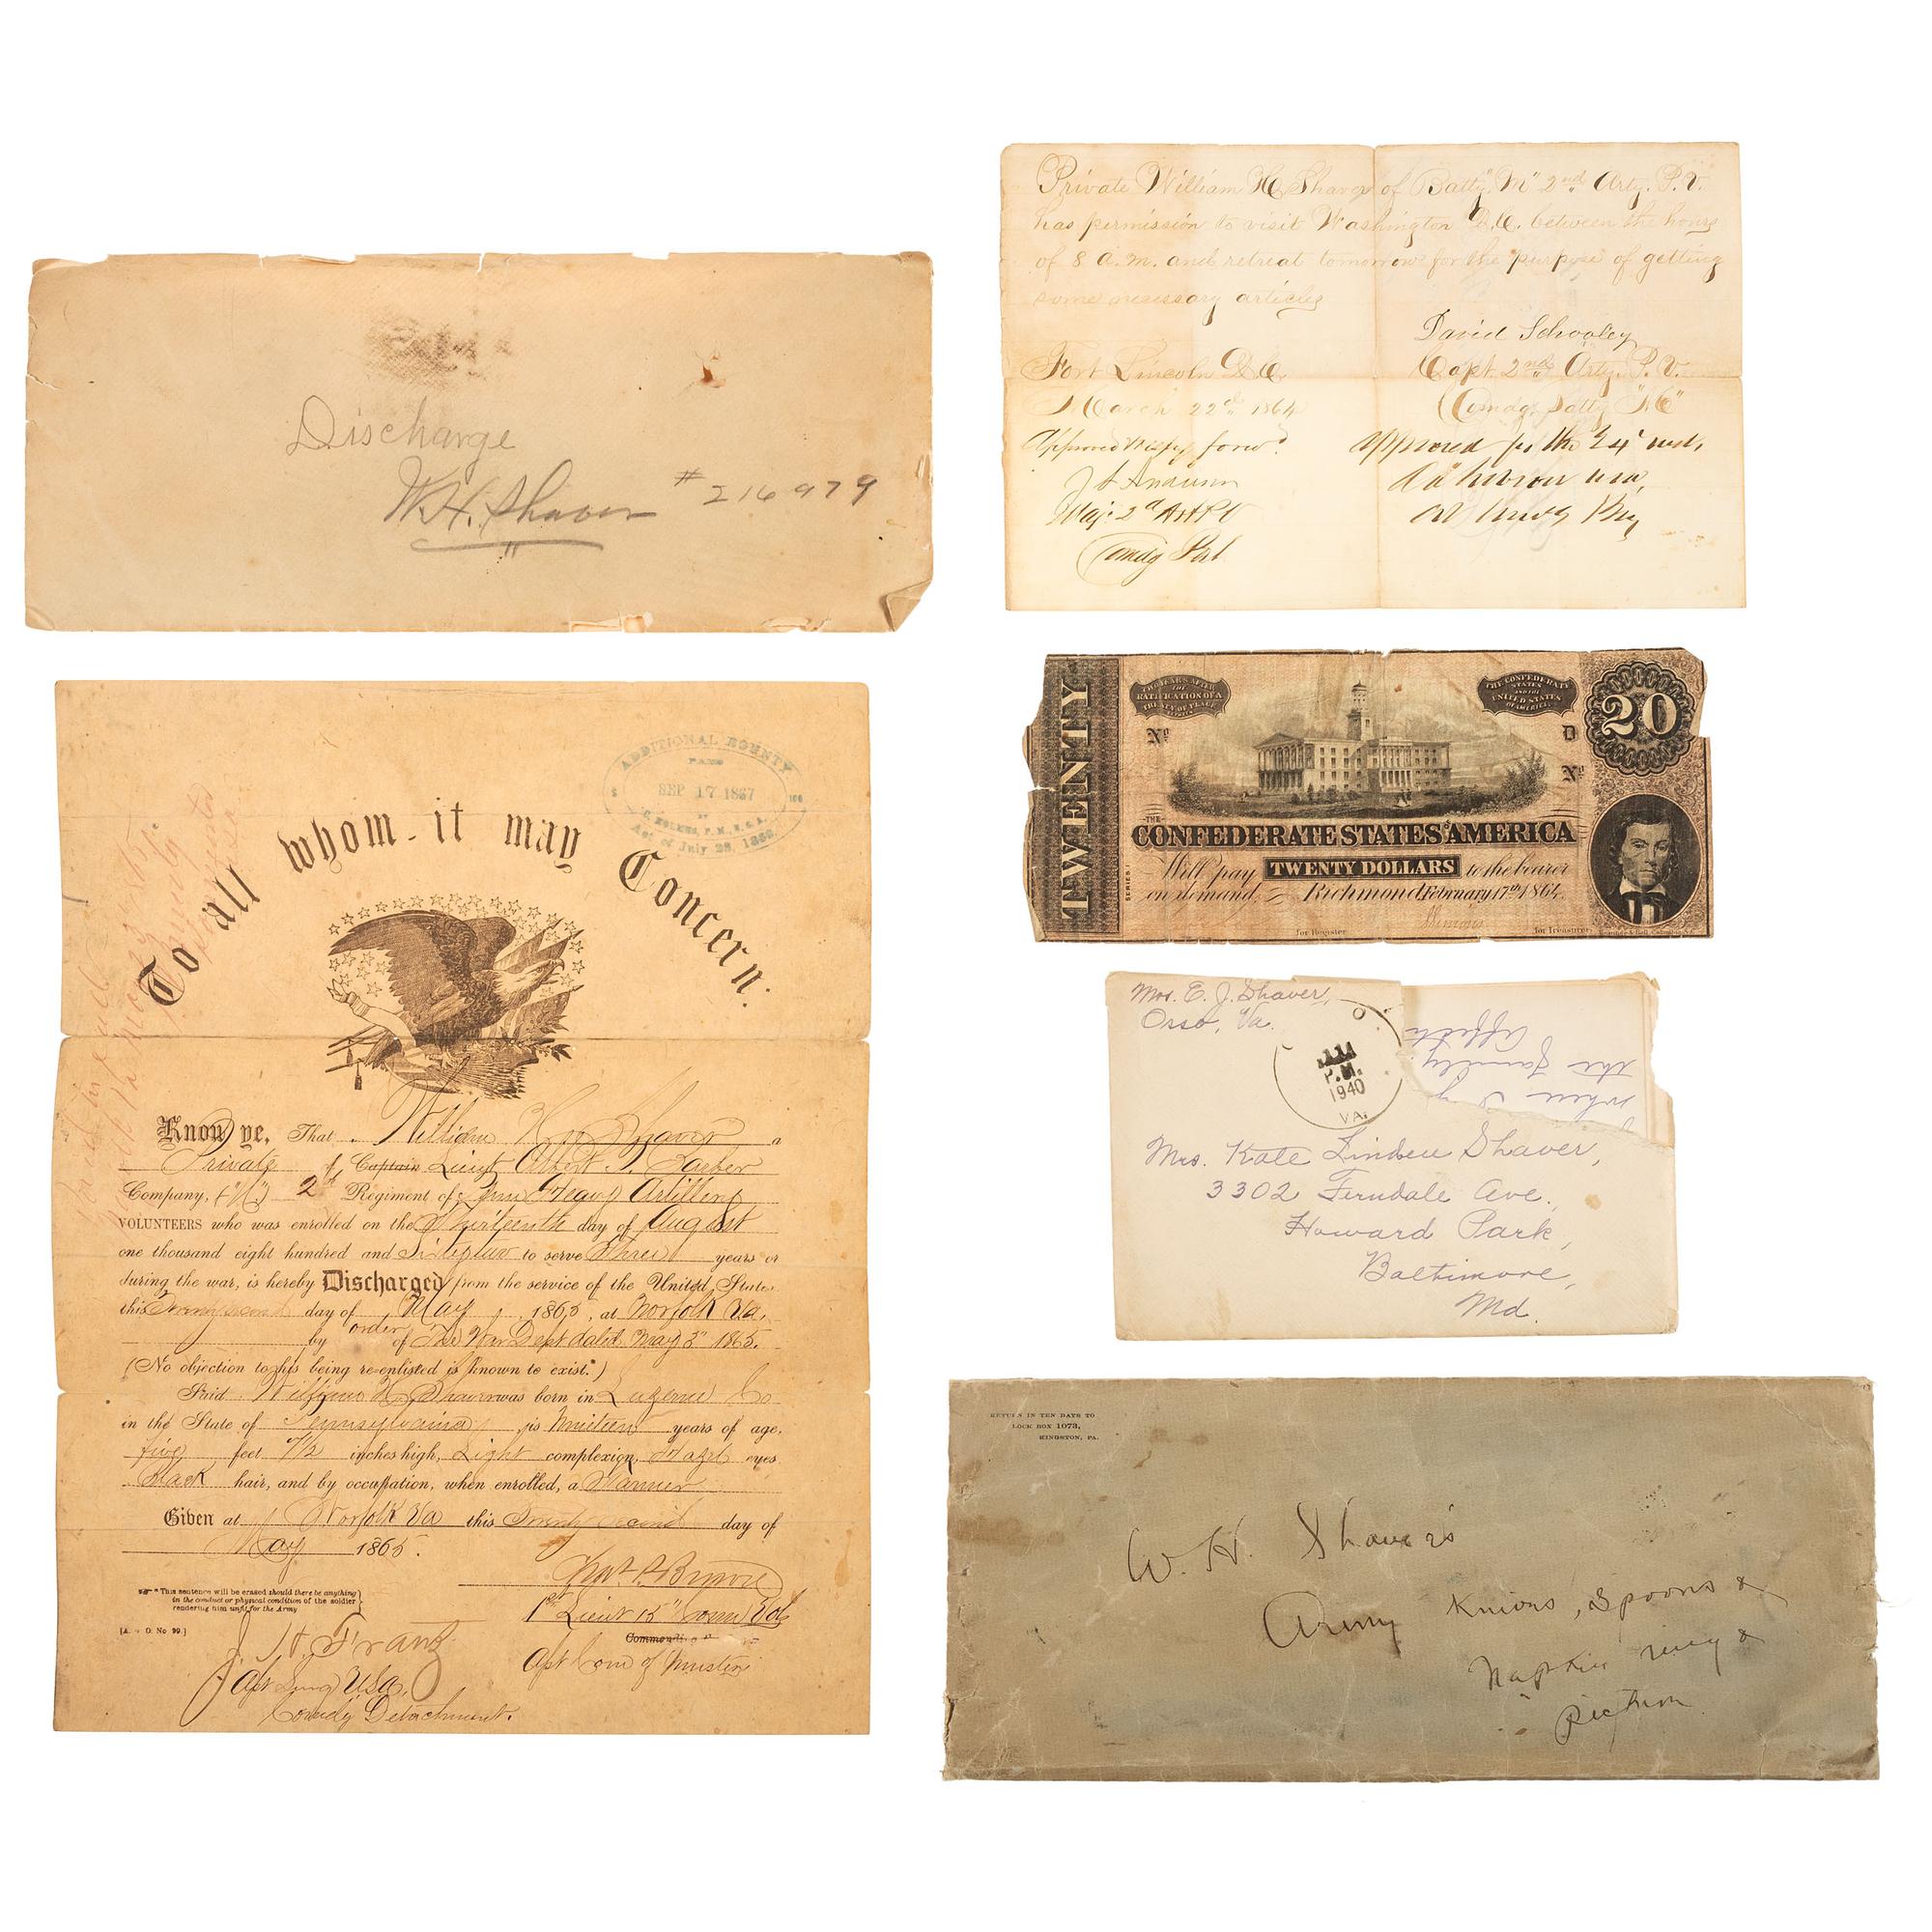 Discharge
W. H. Shaver #216979
Private William H Shaver of Batty. "M" 2nd Arty. P. V.
has permission to visit Washington D.C. between the hours
of 8 A.M. and retreat tomorrow for the purpose of getting
some necessary articles
David Schooley
Fort Lincoln D.C.
Capt. 2nd Arty. P. V.
March 22d 1864
Comdg. Batty "M"
Approved
forwd.
Maj. 2d Art P V
Approved for the 24 inst.
Comdg
ADDITIONAL BOUNTY
PAID
SEP 17 1867
BY
Act of July 28, 1866.
To all whom it may Concern:
Know ye, That William H. Shaver a
Private of Captain Lieut Albert
Company, ("M") 2d Regiment of Penn Heavy Artillery
VOLUNTEERS who was enrolled on the Thirteenth day of August
one thousand eight hundred and to serve Three years or
during the war, is hereby Discharged from the service of the United States
this Twenty second day of May, 1865, at Norfolk Va,
by order of The War Dept dated May 3" 1865.
(No objection to his being re-enlisted is known to exist.*)
Said William H. Shaver was born in Luzerne Co
in the State of Pennsylvania, is Nineteen years of age,
five feet 7½ inches high, Light complexion, Hazel eyes
Black hair, and by occupation, when enrolled, a
Given at Norfolk Va this Twenty second day of
May 1865.
*This sentence will be erased should there be anything
in the conduct or physical condition of the soldier
rendering him unfit for the Army
[A. G. O. No. 99.]
1st Lieut 15" Conn Vols
J. H. Frantz
USA.
Comdg Detachment.
TWENTY
TWO YEARS AFTER
THE
RATIFICATION OF A
TREATY OF PEACE
THE CONFEDERATE
STATES
AND THE
UNITED STATES
OF AMERICA
20
No
D
No
THE
CONFEDERATE STATES AMERICA
SERIES 1
Will pay TWENTY DOLLARS to the bearer
on demand Richmond February 17th 1864
for Register
for Treasurer
Mrs. E. J. Shaver,
Orso, Va.
P.M.
1940
VA.
when I
the family
Mrs. Kate Linden Shaver,
3302 Ferndale Ave,
Howard Park,
Baltimore,
Md.
RETURN IN TEN DAYS TO
LOCK BOX 1073,
KINGSTON, PA.
W. H. Shaver's
Army Knives, Spoons &
Napkin ring &